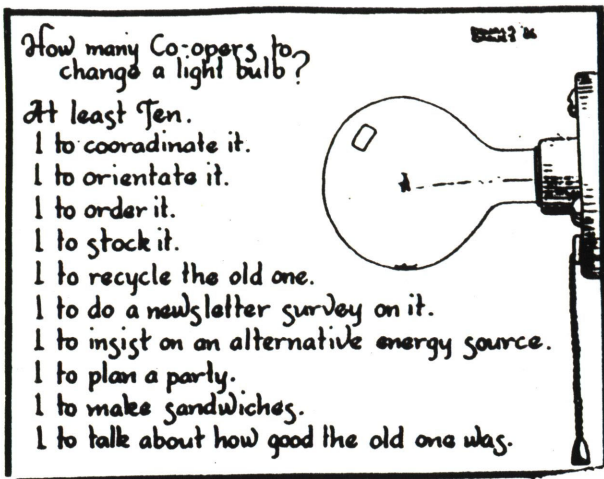 How many Co-opers to
change a light bulb?
At least Ten.
1 to cooradinate it.
1 to orientate it.
1 to order it.
1 to stock it.
1 to recycle the old one.
1 to do a newsletter survey on it.
1 to insist on an alternative energy source.
1 to plan a party.
1 to make sandwiches.
1 to talk about how good the old one was.